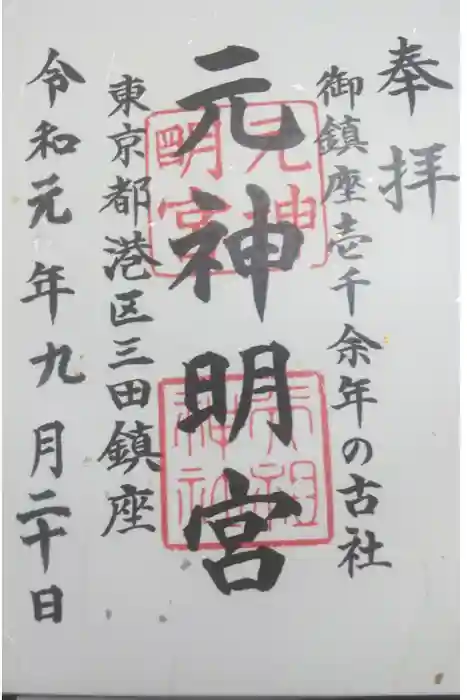 奉拝
御鎮座壱千余年の古社
元神明宮
元神明宮
東京都港区三田鎮座
令和元年九月二十日